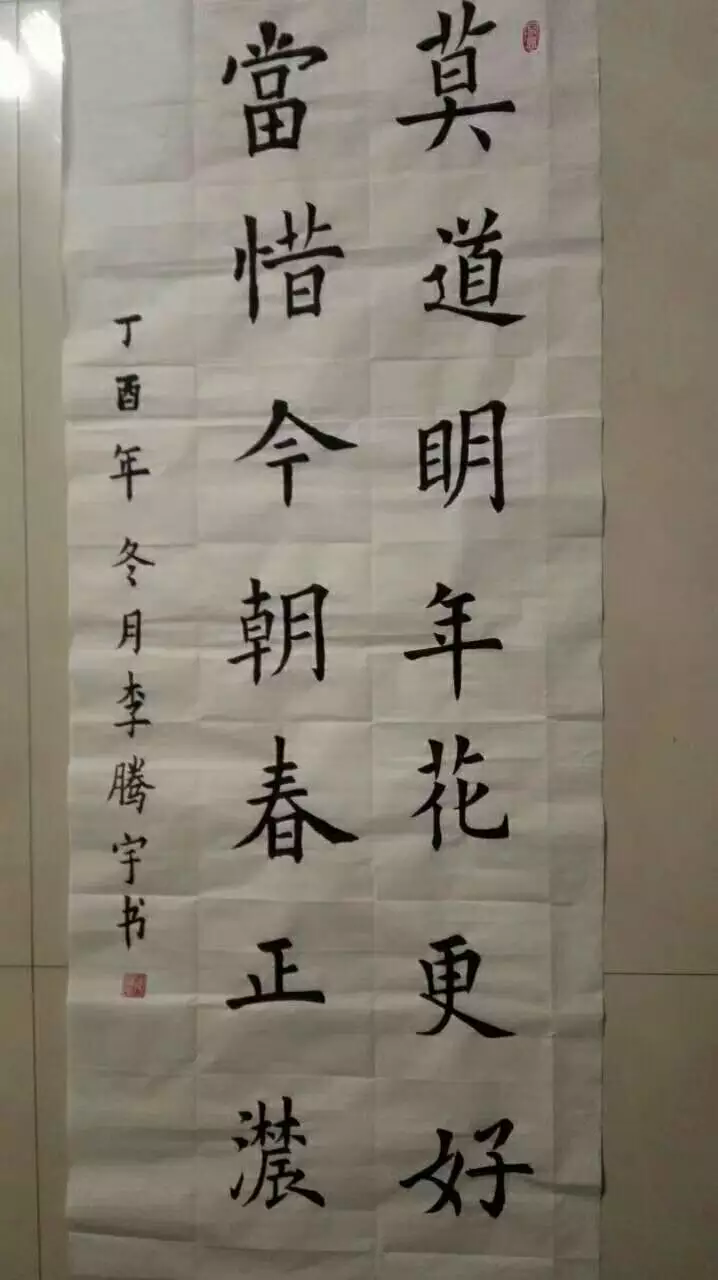 莫道明年花更好
當惜今朝春正濃
丁酉年冬月李腾宇书